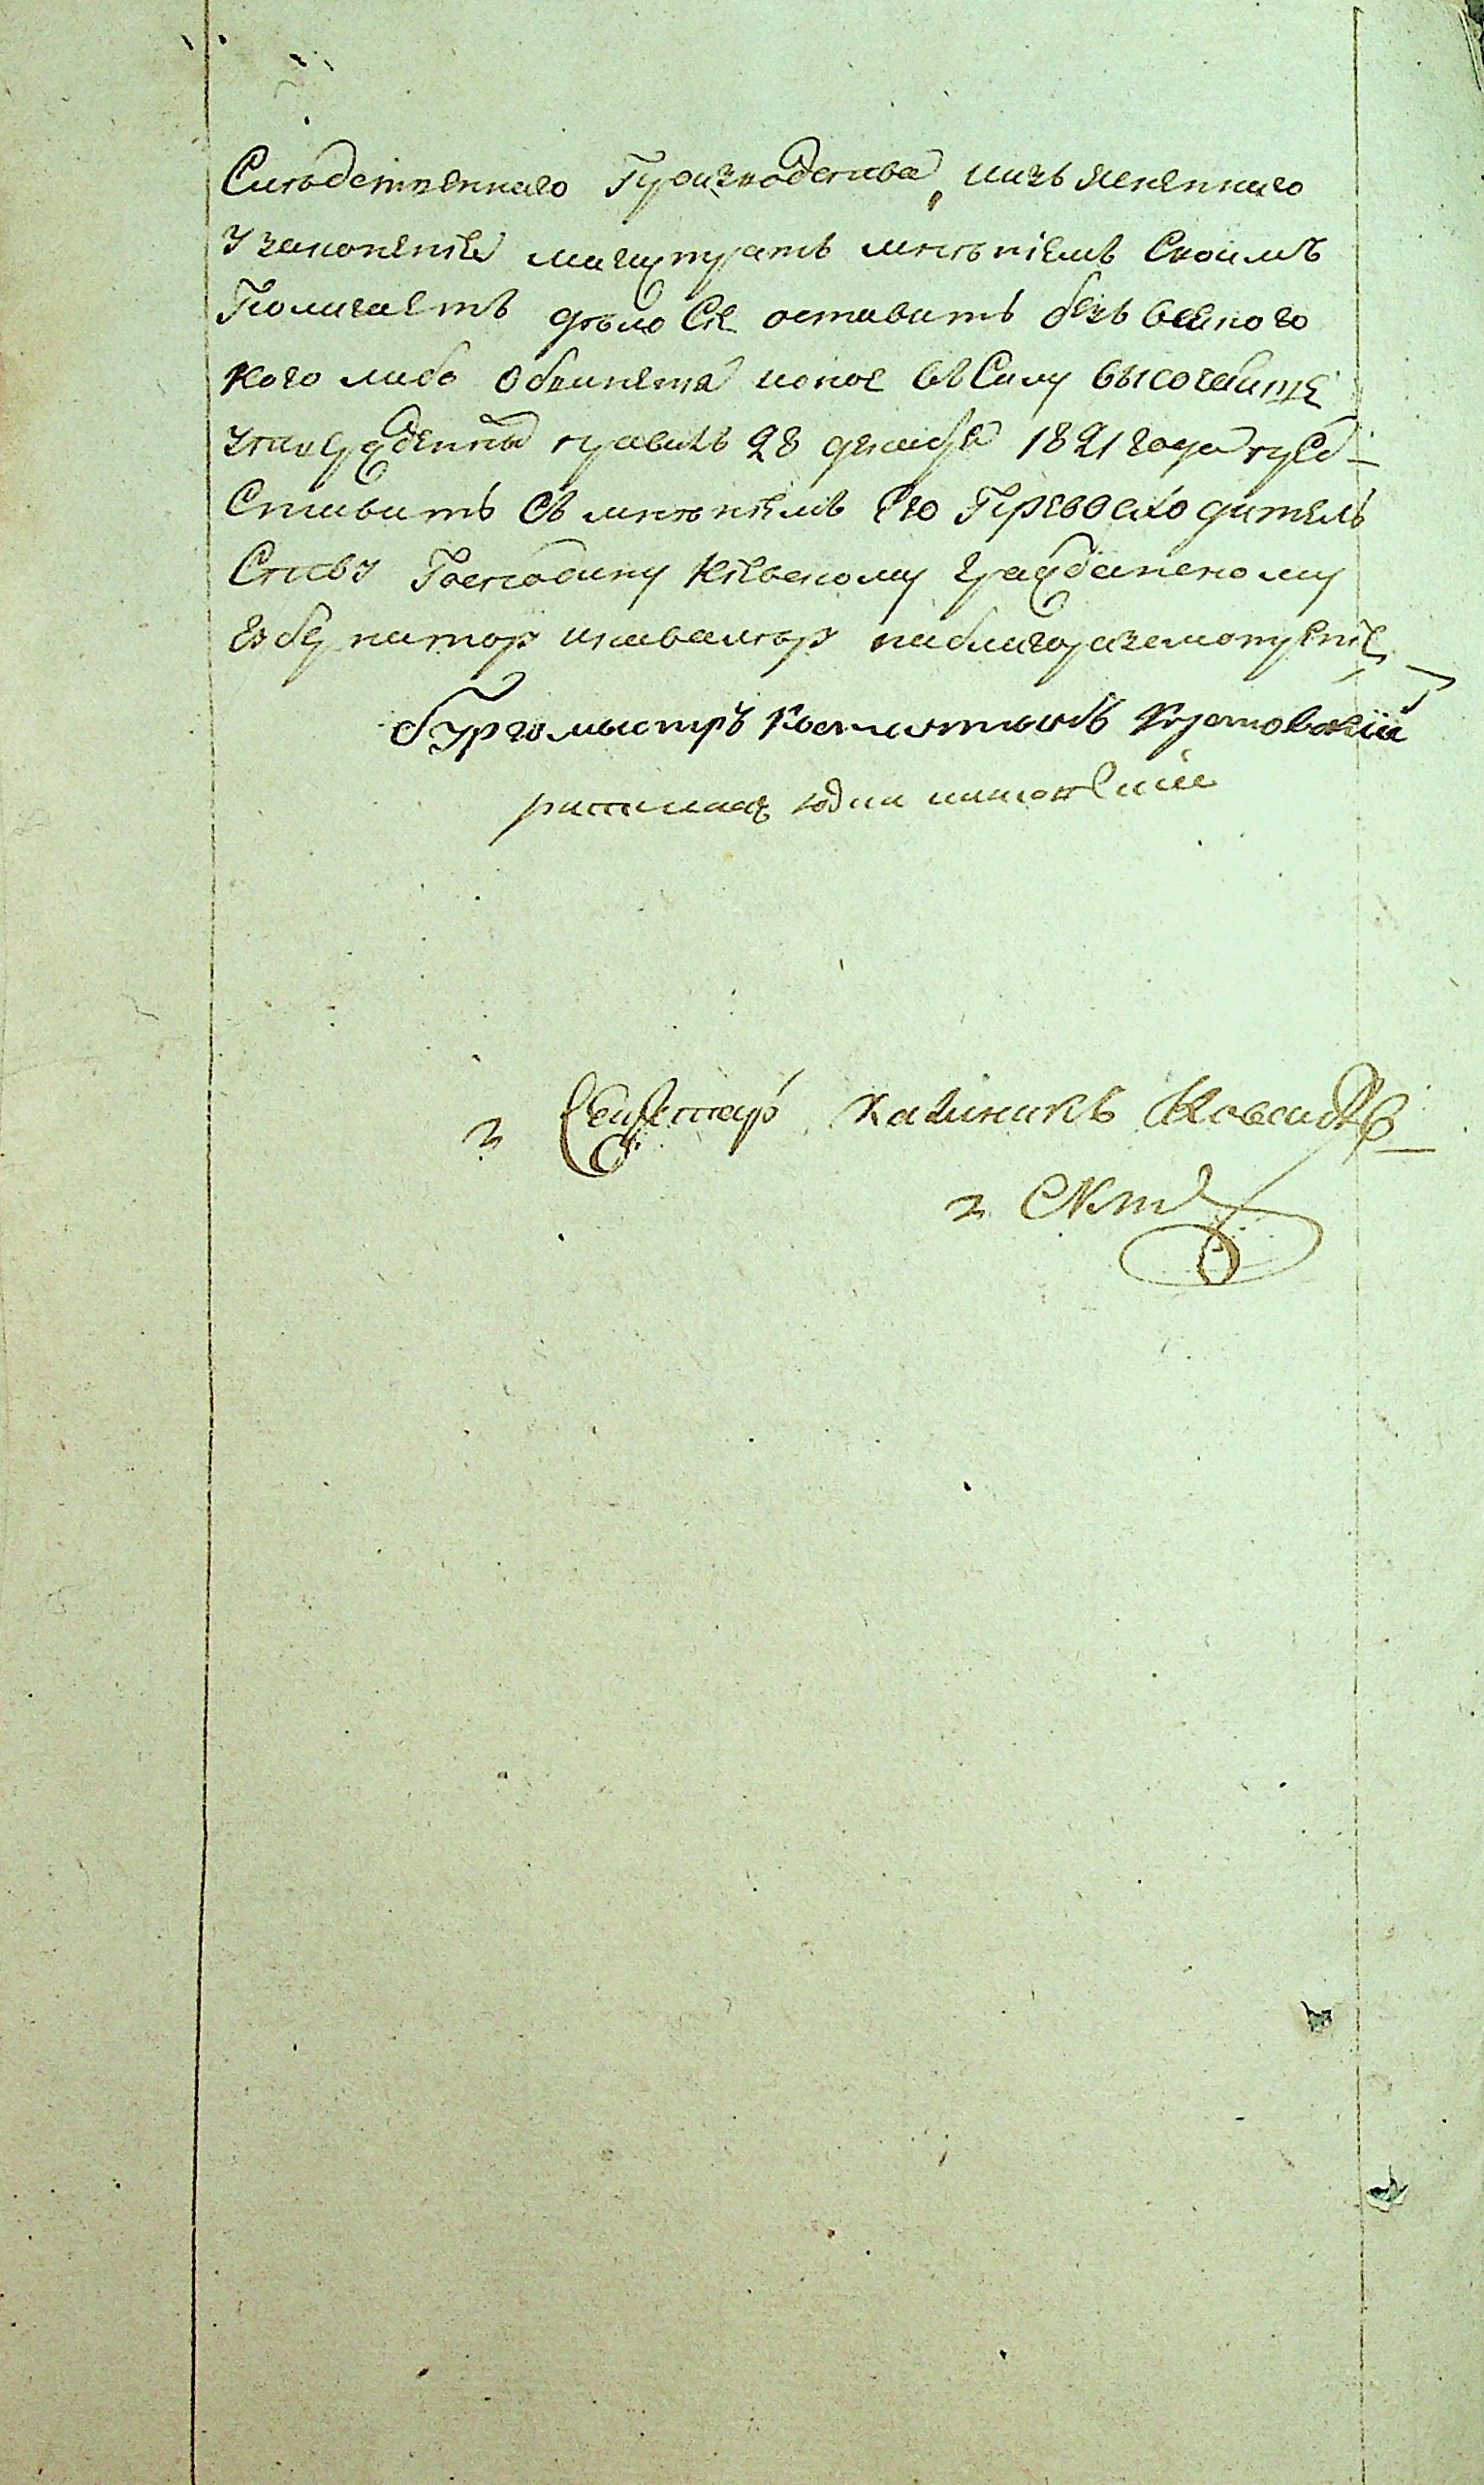 Слѣдственнаго Производства, иизъясненнаго
узаконенія магистратъ мнѣніемъ Своимъ
Полагаетъ дѣло Сіе оставить безъ всякого
кого либо обвиненія ионое въСилу высочайше
утвержденны правилъ 28 декабря 1821 года пред-
Ставить Съ мнѣніемъ Его Превосходитель
Ству Господину Кіевскому гражданскому
губернатору икавалеру наблагоразсмотреніе
бургомыстръ
Секретарь Калиникъ